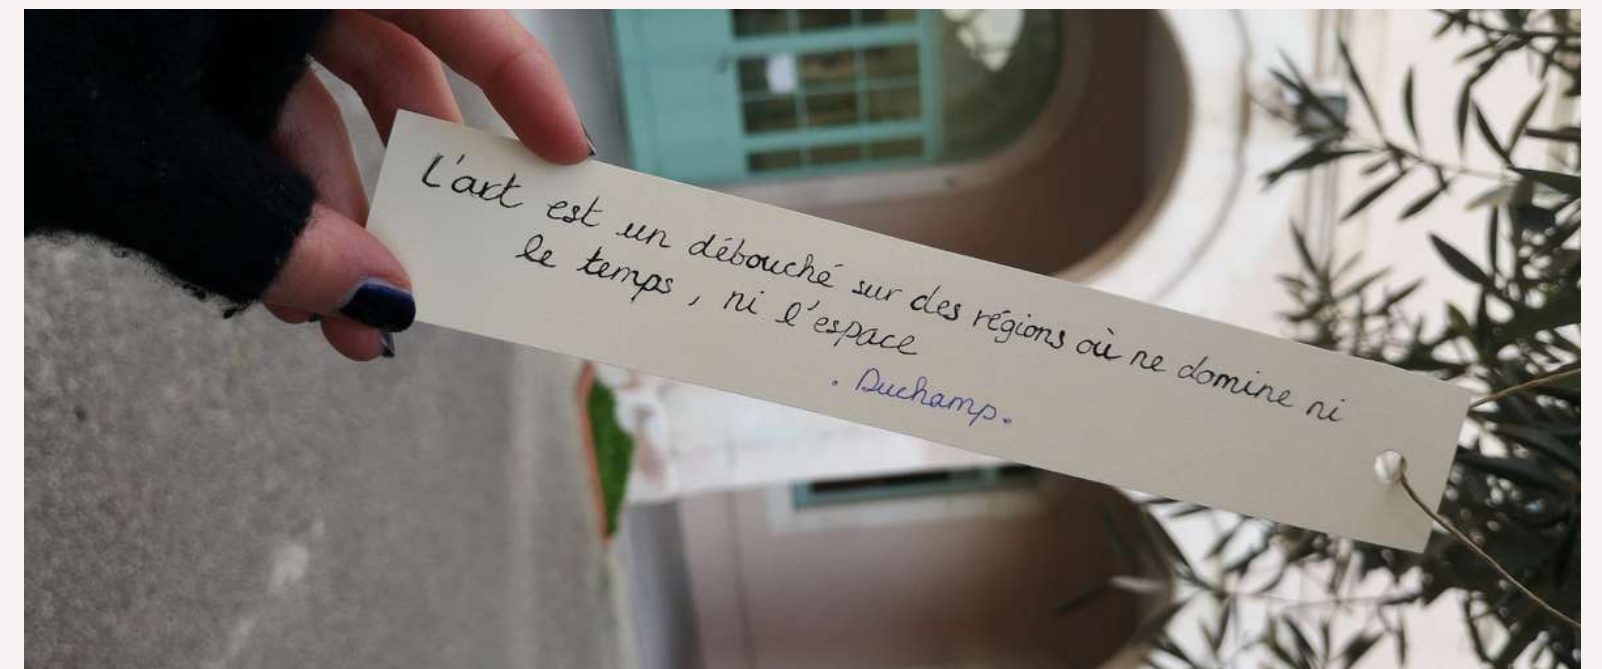 L'art est un débouché sur des régions où ne domine ni
le temps, ni l'espace
. Duchamp.